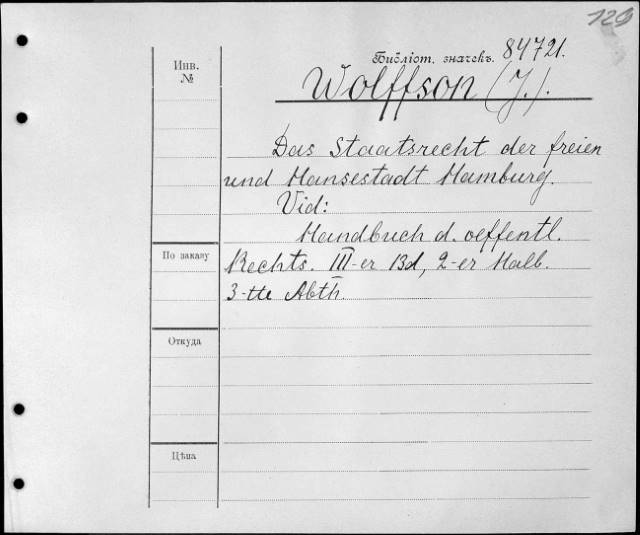 120
Инв.
№
Библіот. значекъ. 84721.
Wolffson (J.).
Das Staatsrecht der freien
und Hansestadt Hamburg.
Vid:
Handbuch d. oeffentl.
По заказу
Rechts. III-er Bd, 2-er Halb.
3-tte Abth.
Откуда
Цѣна